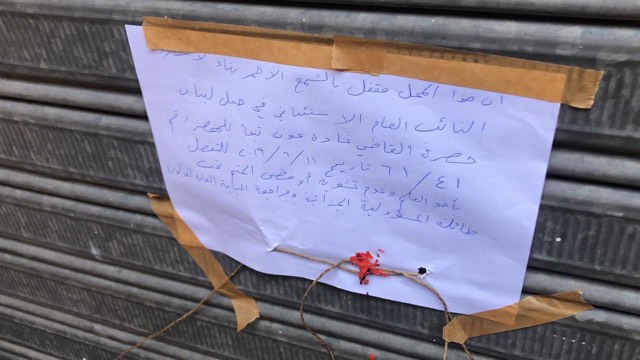 ان هذا المحل مقفل بالشمع الاحمر بناء لاشارة
النائب العام الاستئنافي في جبل لبنان
حضرة القاضي غادة عون تبعا للمحضر رقم
٦٠١/٤١ تاريخ ٢٠١٩/٦/١١ للتفضل
بأخذ العلم وعدم تشويه أو فض الختم تحت
طائلة المسؤولية الجزائية ومراجعة النيابة العامة